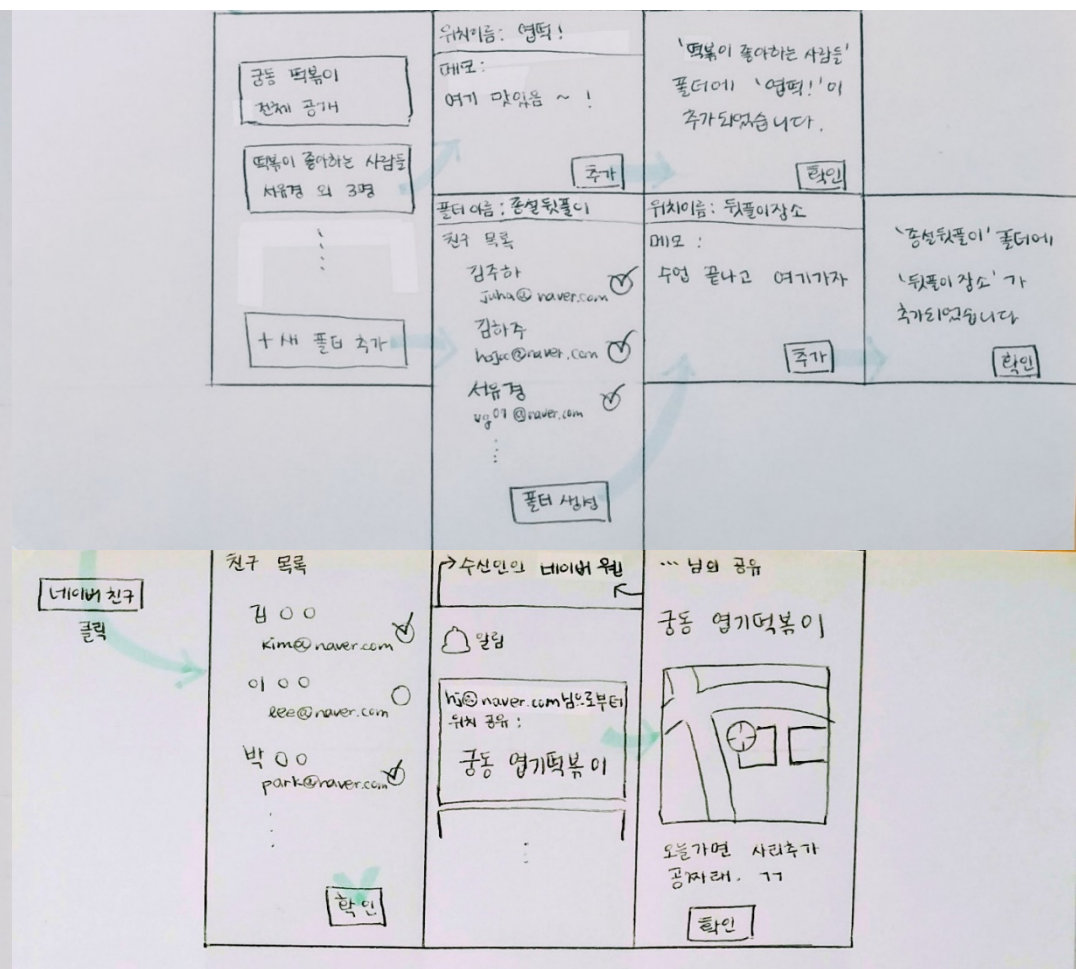 궁동 떡볶이
전체 공개
떡볶이 좋아하는 사람들
서유경 외 3명
+ 새 폴더 추가
위치이름: 엽떡!
메모:
여기 맛있음 ~ !
추가
'떡볶이 좋아하는 사람들'
폴더에 '엽떡!'이
추가되었습니다.
확인
폴더이름: 종설뒷풀이
친구 목록
김주하
juha@naver.com
김하주
hajuu@naver.com
서유경
yg07@naver.com
폴더 생성
위치이름: 뒷풀이장소
메모 :
수업 끝나고 여기가자
추가
'종설뒷풀이' 폴더에
'뒷풀이 장소'가
추가되었습니다
확인
네이버 친구
클릭
친구 목록
김 ○○
kim@naver.com
이 ○○
lee@naver.com
박 ○○
park@naver.com
확인
수신인의 네이버 웹
알림
hj@naver.com님으로부터
위치 공유 :
궁동 엽기떡볶이
... 님의 공유
궁동 엽기떡볶이
오늘가면 사리추가
공짜래. ㄱㄱ
확인